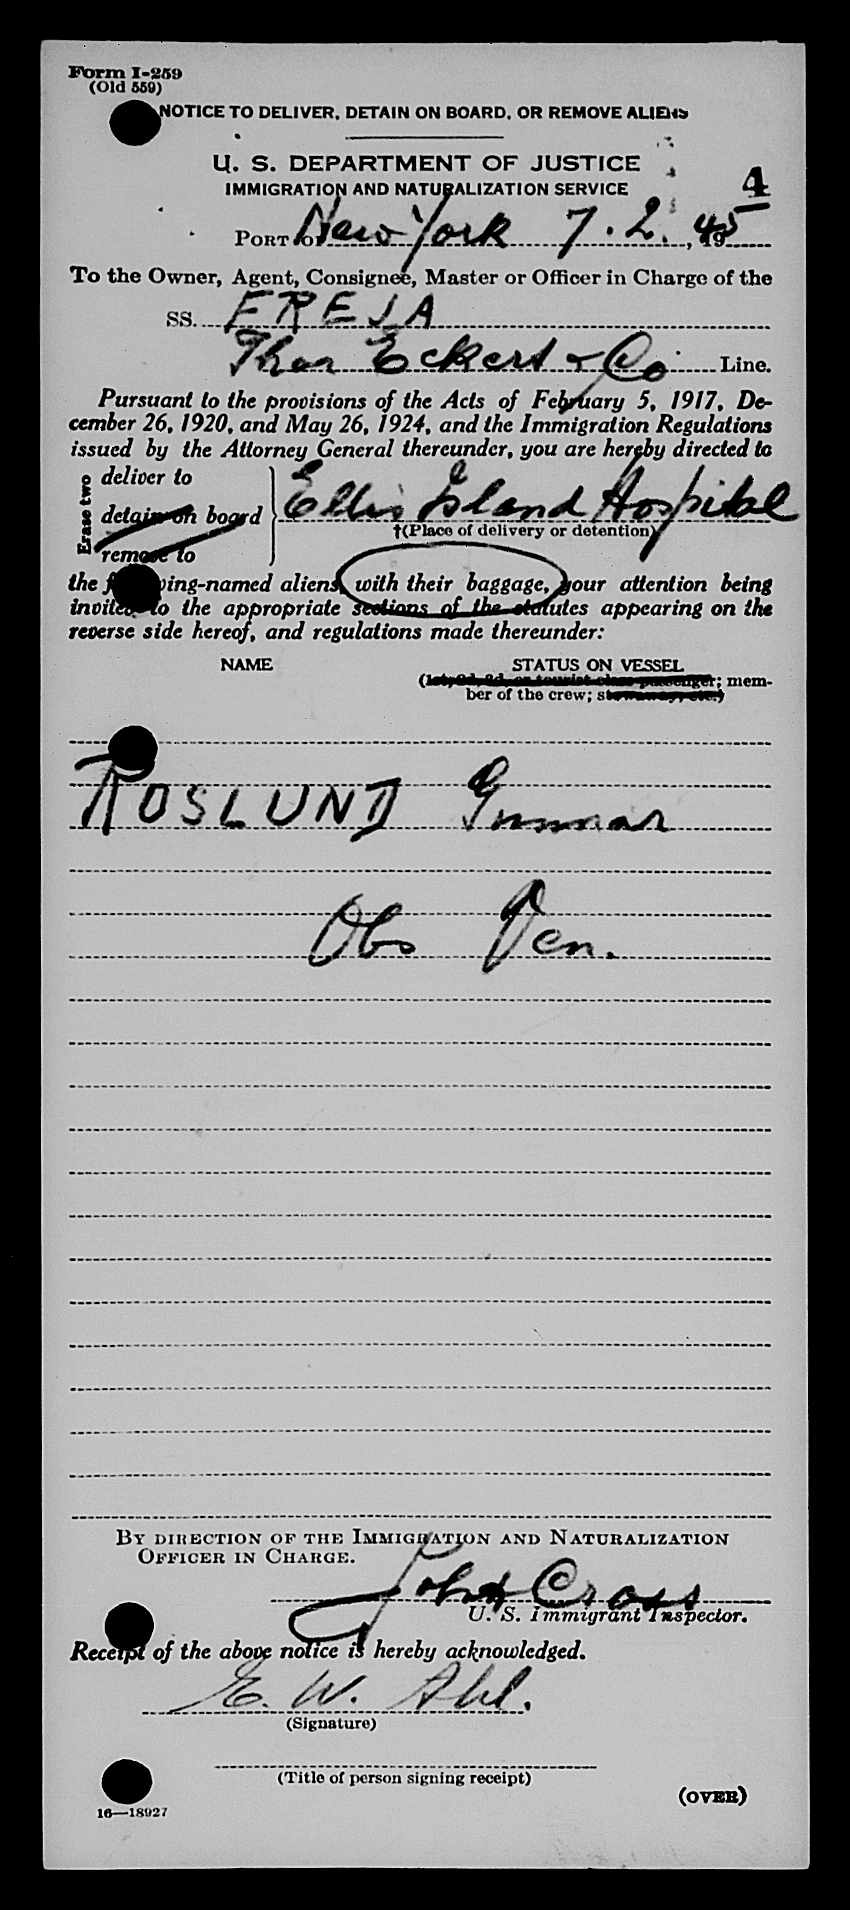 Form I-259
(Old 559)
NOTICE TO DELIVER, DETAIN ON BOARD, OR REMOVE ALIENS
U. S. DEPARTMENT OF JUSTICE
IMMIGRATION AND NATURALIZATION SERVICE
4
PORT OF New York 7.2. , 1945
To the Owner, Agent, Consignee, Master or Officer in Charge of the
SS. FREJA
Thor Eckert & Co. Line.
Pursuant to the provisions of the Acts of February 5, 1917, De-
cember 26, 1920, and May 26, 1924, and the Immigration Regulations
issued by the Attorney General thereunder, you are hereby directed to
Erase two
deliver to
detain on board
remove to
Ellis Island Hospital
†(Place of delivery or detention)
the following-named aliens, with their baggage, your attention being
invited to the appropriate sections of the statutes appearing on the
reverse side hereof, and regulations made thereunder:
NAME STATUS ON VESSEL
(1st, 2d, 3d, or tourist class passenger; mem-
ber of the crew; stowaway, etc.)
ROSLUND Gunnar
Obs Ven.
BY DIRECTION OF THE IMMIGRATION AND NATURALIZATION
OFFICER IN CHARGE.
John Cross
U. S. Immigrant Inspector.
Receipt of the above notice is hereby acknowledged.
E. W. Ahl.
(Signature)
(Title of person signing receipt)
(OVER)
16—18927